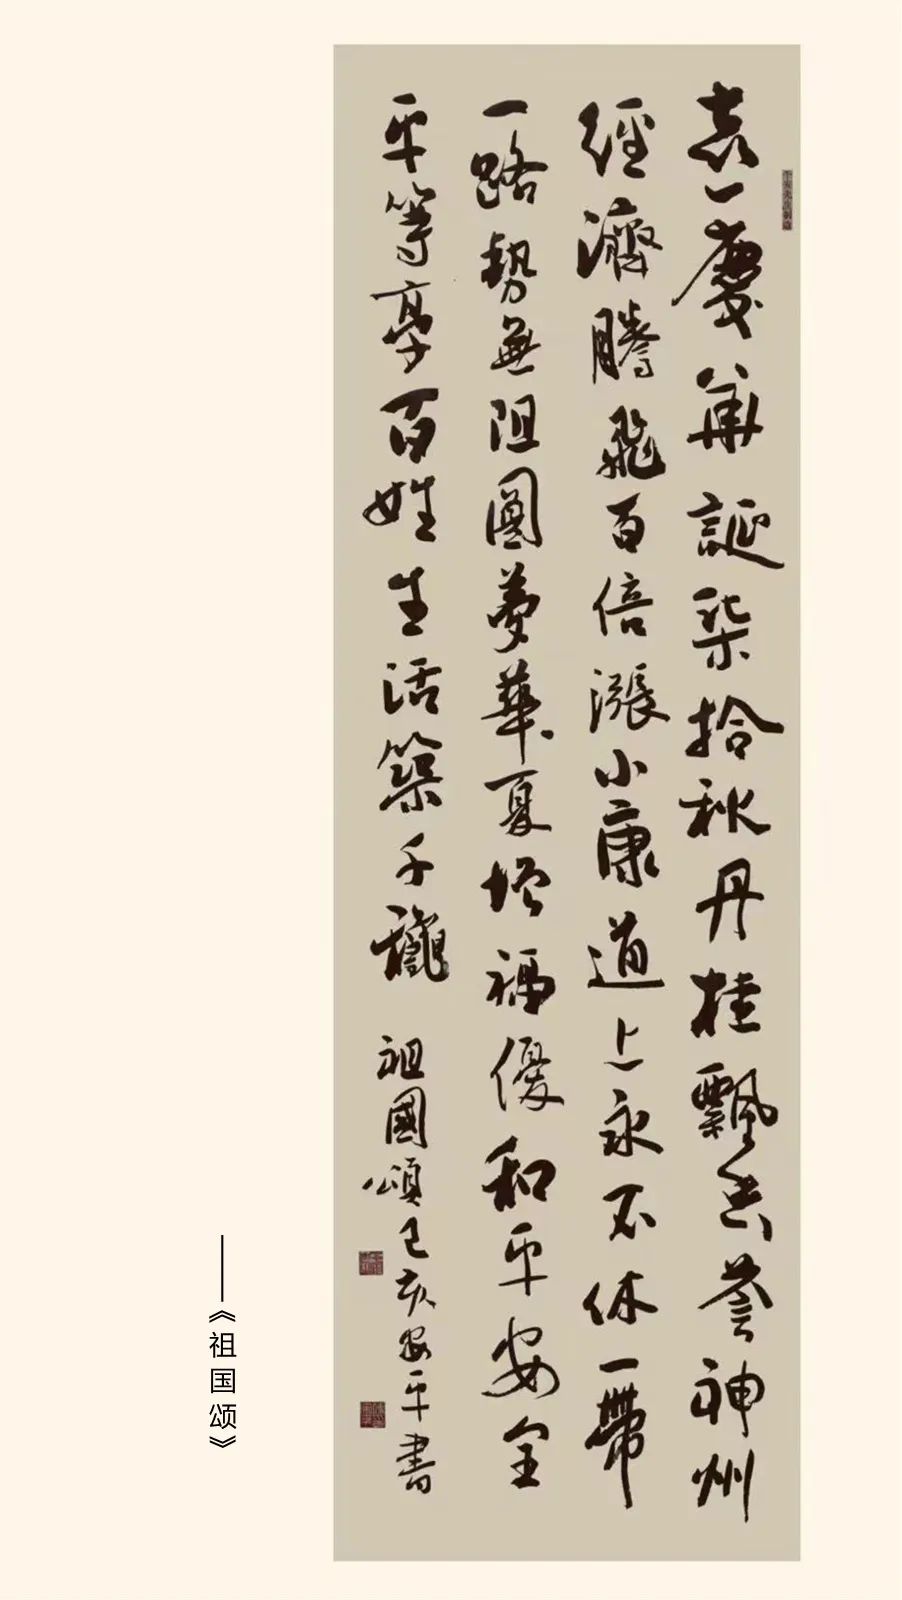 喜慶華誕柒拾秋丹桂飄香荟神州
經濟騰飛百倍漲小康道上永不休一帶
一路勢無阻圓夢華夏增福優和平安全
平等享百姓生活築千龝 祖國頌己亥安平書
——《祖国颂》